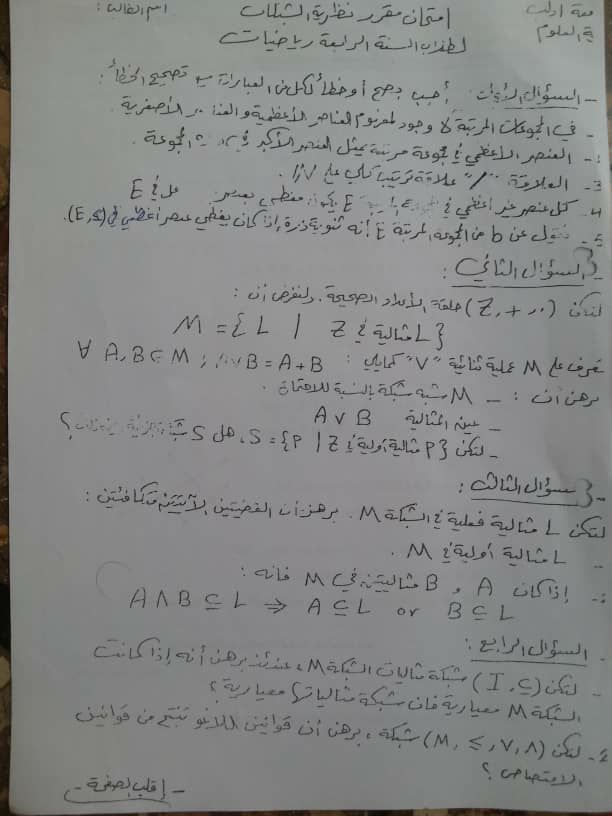 امتحان مقرر نظرية الشبكات
اسم الطالب:
العلوم
لطلاب السنة الرابعة رياضيات
- السؤال الأول: أجب بصح أو خطأ لكل من العبارات مع تصحيح الخطأ:
- في المجموعات المرتبة لا وجود لمفهوم العناصر الأعظمية والعناصر الأصغرية.
- العنصر الأعظمي في مجموعة مرتبة يمثل العنصر الأكبر في المجموعة.
3- العلاقة "/" علاقة ترتيب كلي على N.
4- كل عنصر غير أعظمي في E يكون مغطى بعنصر في E
5- نقول عن b من المجموعة المرتبة E أنه ثنوية ذرة إذا كان يغطي عنصر أعظمي في (E,≤).
السؤال الثاني:
لتكن (Z,+,.) حلقة الأعداد الصحيحة. ولنفرض أن:
M = {L | Z مثالية في L}
نعرف على M عملية ثنائية "V" كمايلي: A∨B = A+B ; ∀ A,B∈M
برهن أن: - M شبه شبكة بالنسبة للاحتمال
- عين المثالية A ∨ B
- لتكن S = {P | Z مثالية أولية في P}، هل S شبكة جزئية
السؤال الثالث:
لتكن L مثالية فعلية في الشبكة M. برهن أن القضيتين الآتيتين متكافئتين:
- L مثالية أولية في M.
2- إذا كان A و B مثاليتين في M فانه:
A ∧ B ⊆ L ⇒ A ⊆ L or B ⊆ L
- السؤال الرابع:
- لتكن (I,⊆) شبكة مثاليات الشبكة M، عندئذ برهن أنه إذا كانت
الشبكة M معيارية فان شبكة مثالياتها معيارية؟
2- لتكن (M,≤,∨,∧) شبكة، برهن أن قوانين اللانمو تنتج من قوانين
الامتصاص؟
- إقلب الصفحة -